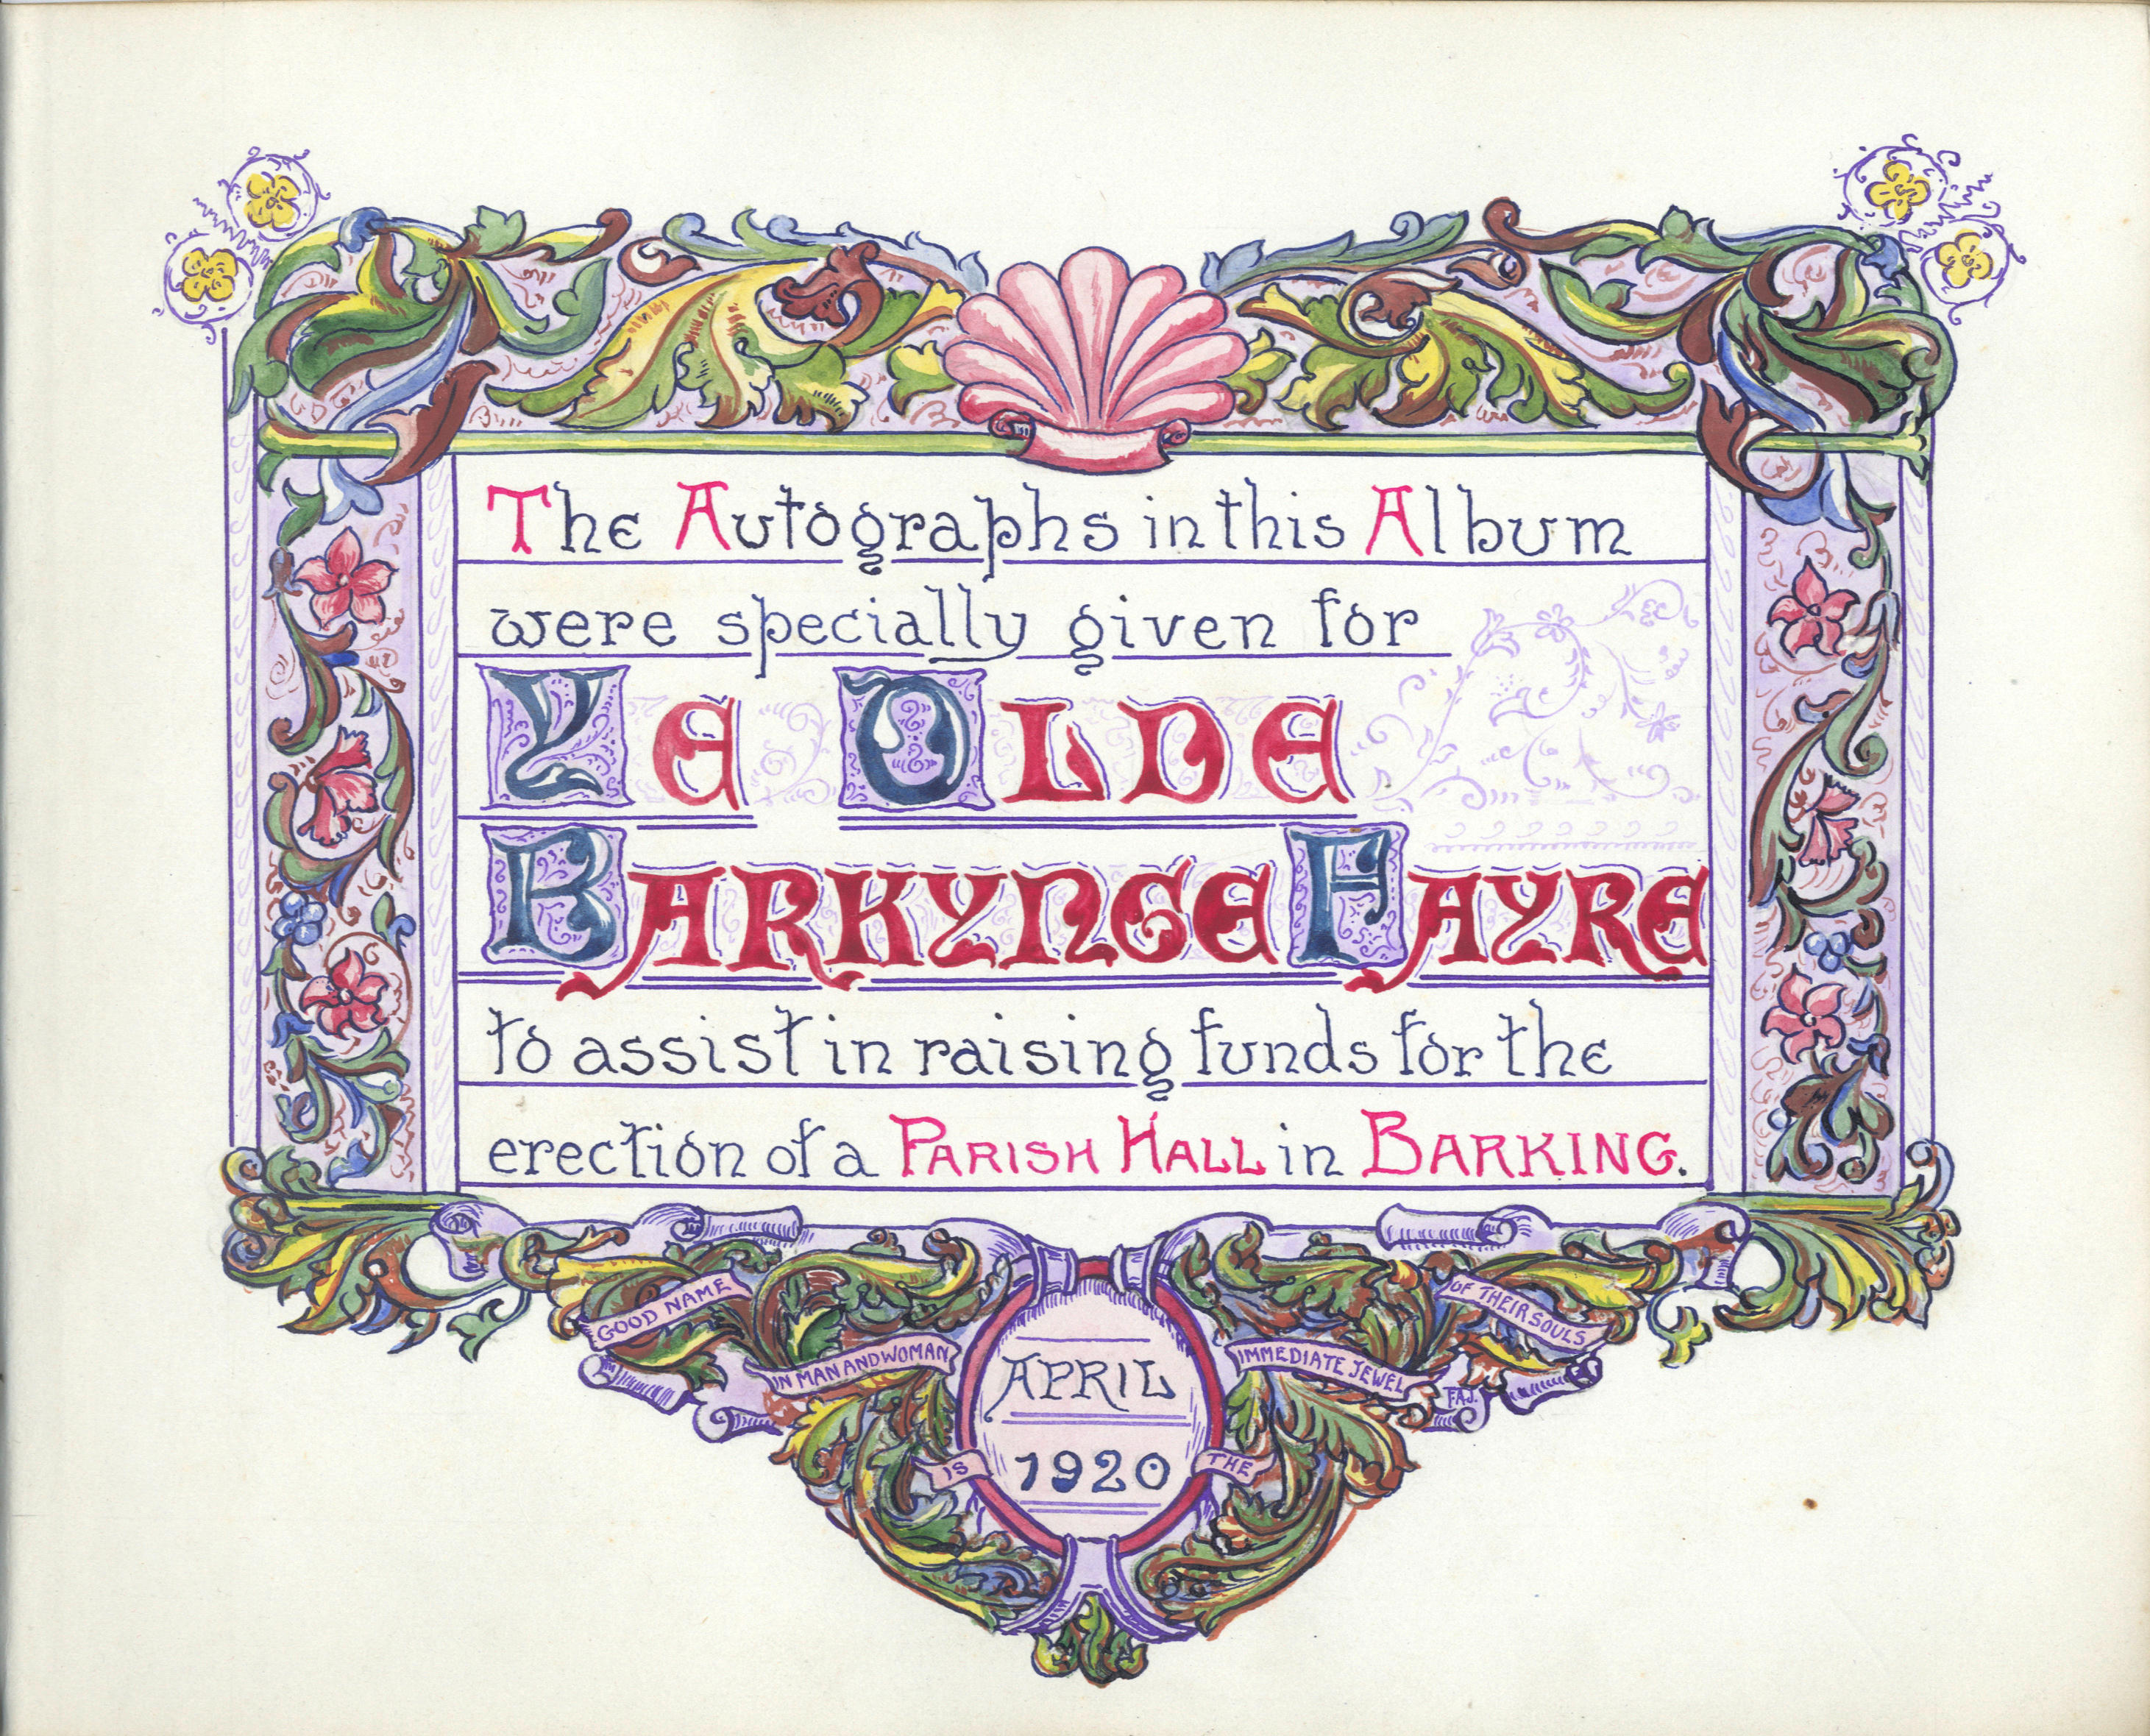 The Autographs in this Album
were specially given for
YE OLDE
BARKYNGE FAYRE
to assist in raising funds for the
erection of a PARISH HALL in BARKING.
GOOD NAME
IN MAN AND WOMAN
IS
THE
IMMEDIATE JEWEL
OF THEIR SOULS
F.A.J.
APRIL
1920